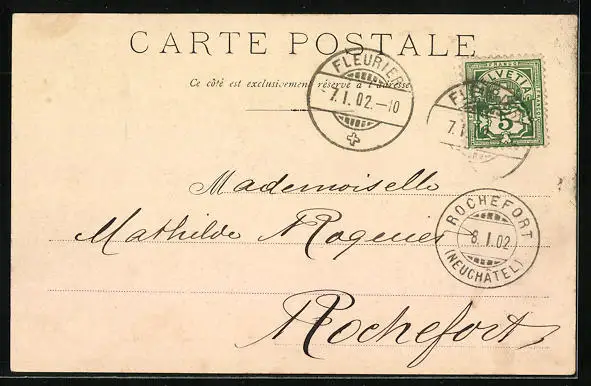 CARTE POSTALE
Ce côté est exclusivement réservé à l'adresse
FLEURIER
-7.I.02.-10
HELVETIA
FRANCO
5
Mademoiselle
Mathilde
Rochefort
ROCHEFORT
8.I.02
(NEUCHÂTEL)